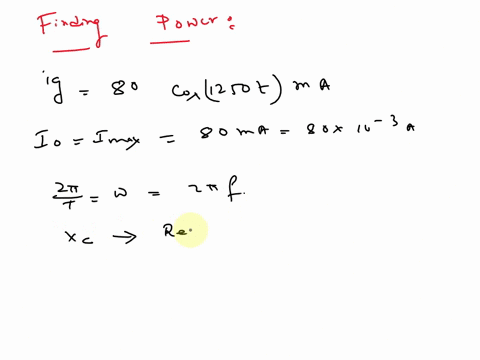 Finding Power:
ig = 80 cos(1250t) mA
I0 = Imax = 80 mA = 80 × 10^-3 A
2π/T = ω = 2π f.
xc → Re